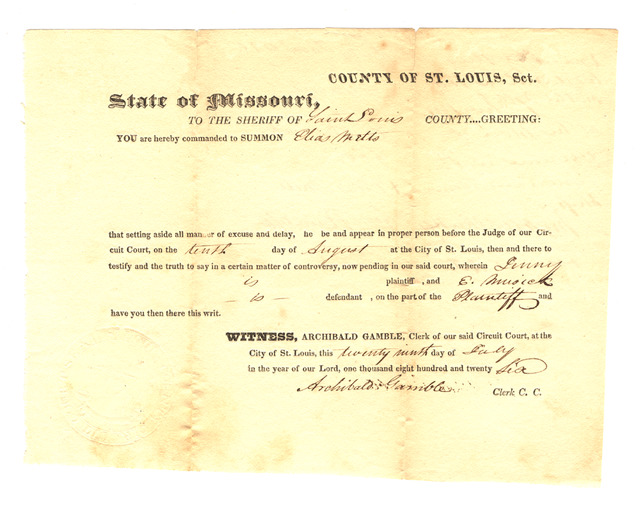 COUNTY OF ST. LOUIS, Sct.
State of Missouri,
TO THE SHERIFF OF Saint Louis COUNTY....GREETING:
YOU are hereby commanded to SUMMON Elias Metts
that setting aside all manner of excuse and delay, he be and appear in proper person before the Judge of our Cir-
cuit Court, on the tenth day of August at the City of St. Louis, then and there to
testify and the truth to say in a certain matter of controversy, now pending in our said court, wherein Jenny
is plaintiff , and E. Musick
– is – defendant , on the part of the Plaintiff and
have you then there this writ.
WITNESS, ARCHIBALD GAMBLE, Clerk of our said Circuit Court, at the
City of St. Louis, this twenty ninth day of July
in the year of our Lord, one thousand eight hundred and twenty six
Archibald Gamble Clerk C. C.